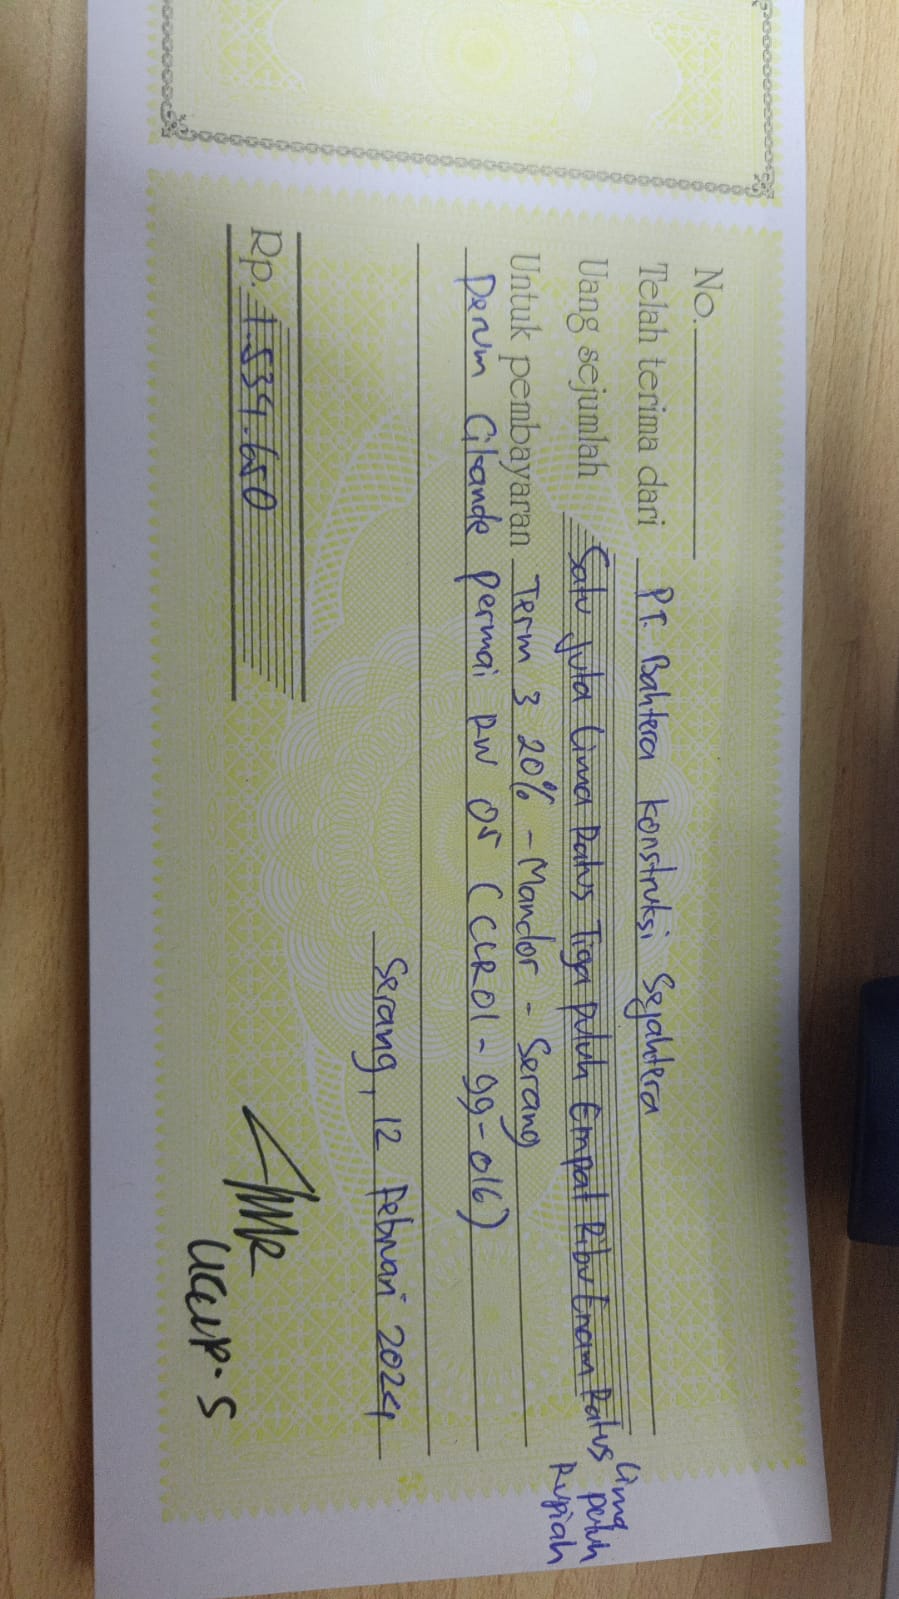 No.
Telah terima dari PT. Bahtera konstruksi Sejahtera
Uang sejumlah Satu juta Lima Ratus Tiga puluh Empat Ribu Enam Ratus Lima puluh Rupiah
Untuk pembayaran Term 3 20% - Mandor - Serang
Perum Cikande permai RW 05 (CCR01-99-016)
Serang, 12 Februari 2024
Rp. 1.534.650
UCUP.S